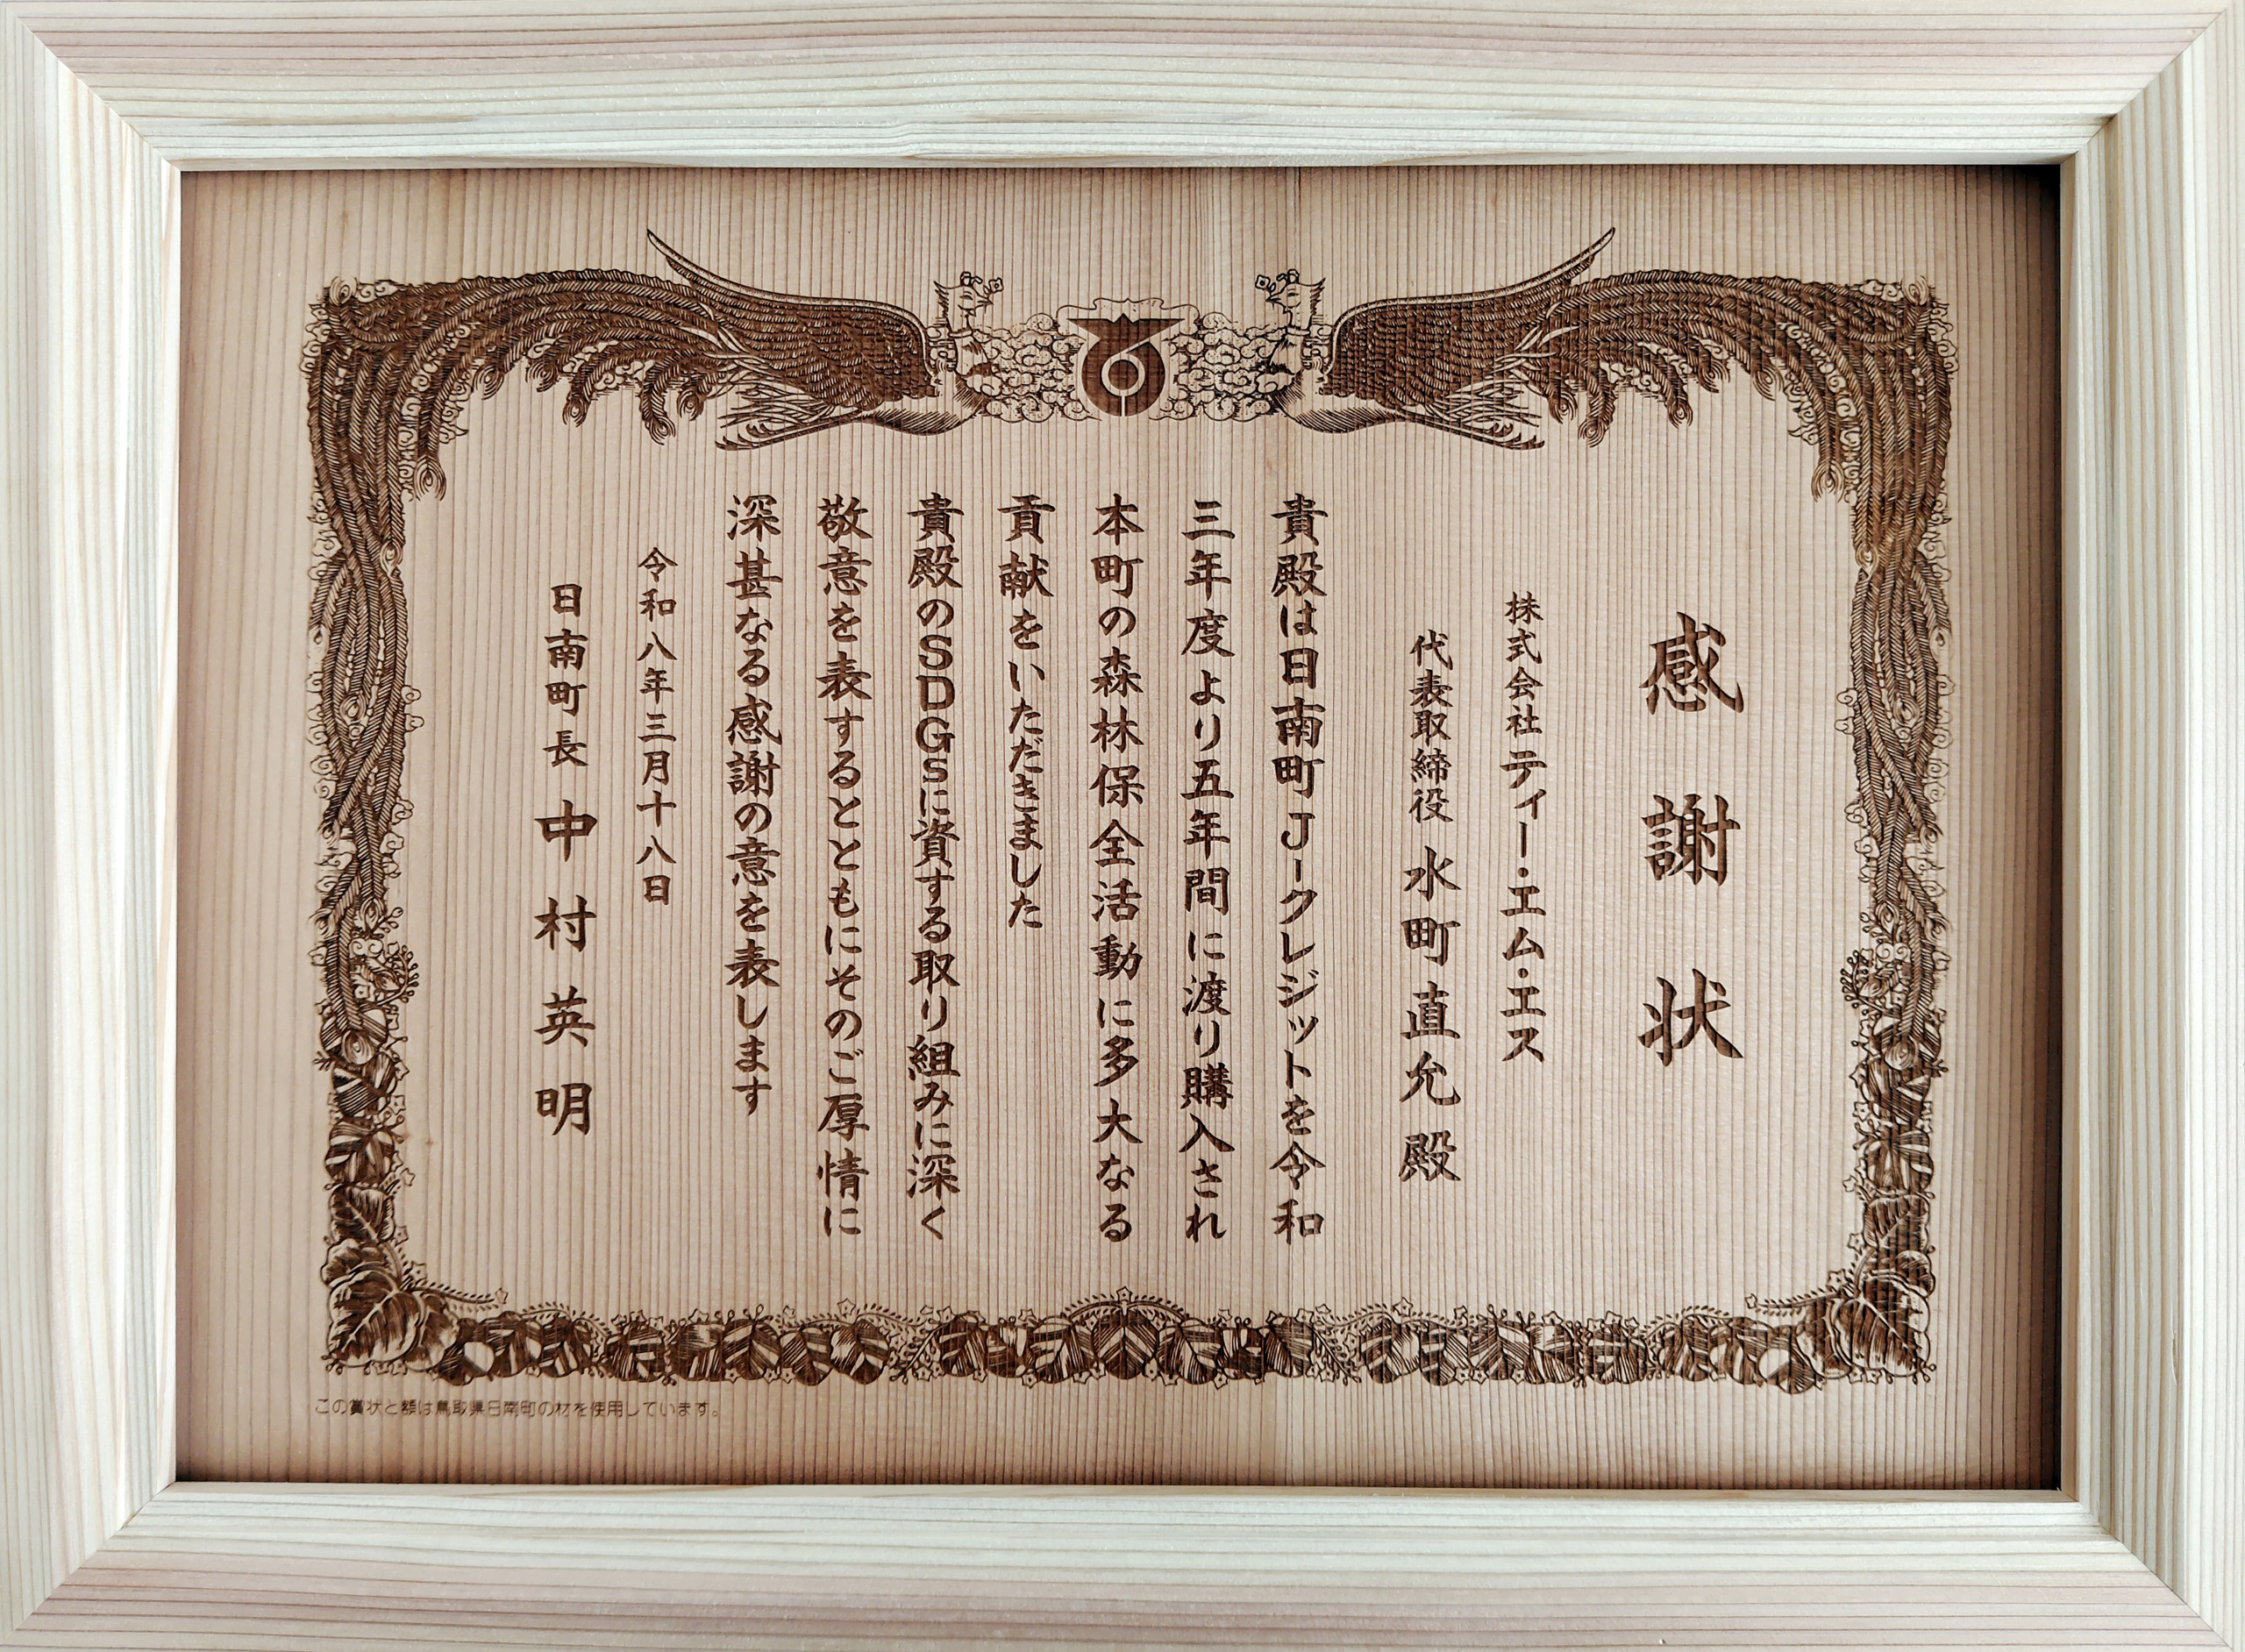 感謝状
株式会社ティー・エム・エス
代表取締役 水町直允殿
貴殿は日南町J-クレジットを令和
三年度より五年間に渡り購入され
本町の森林保全活動に多大なる
貢献をいただきました
貴殿のSDGsに資する取り組みに深く
敬意を表するとともにそのご厚情に
深甚なる感謝の意を表します
令和八年三月十八日
日南町長 中村英明
この賞状と額は鳥取県日南町の材を使用しています。